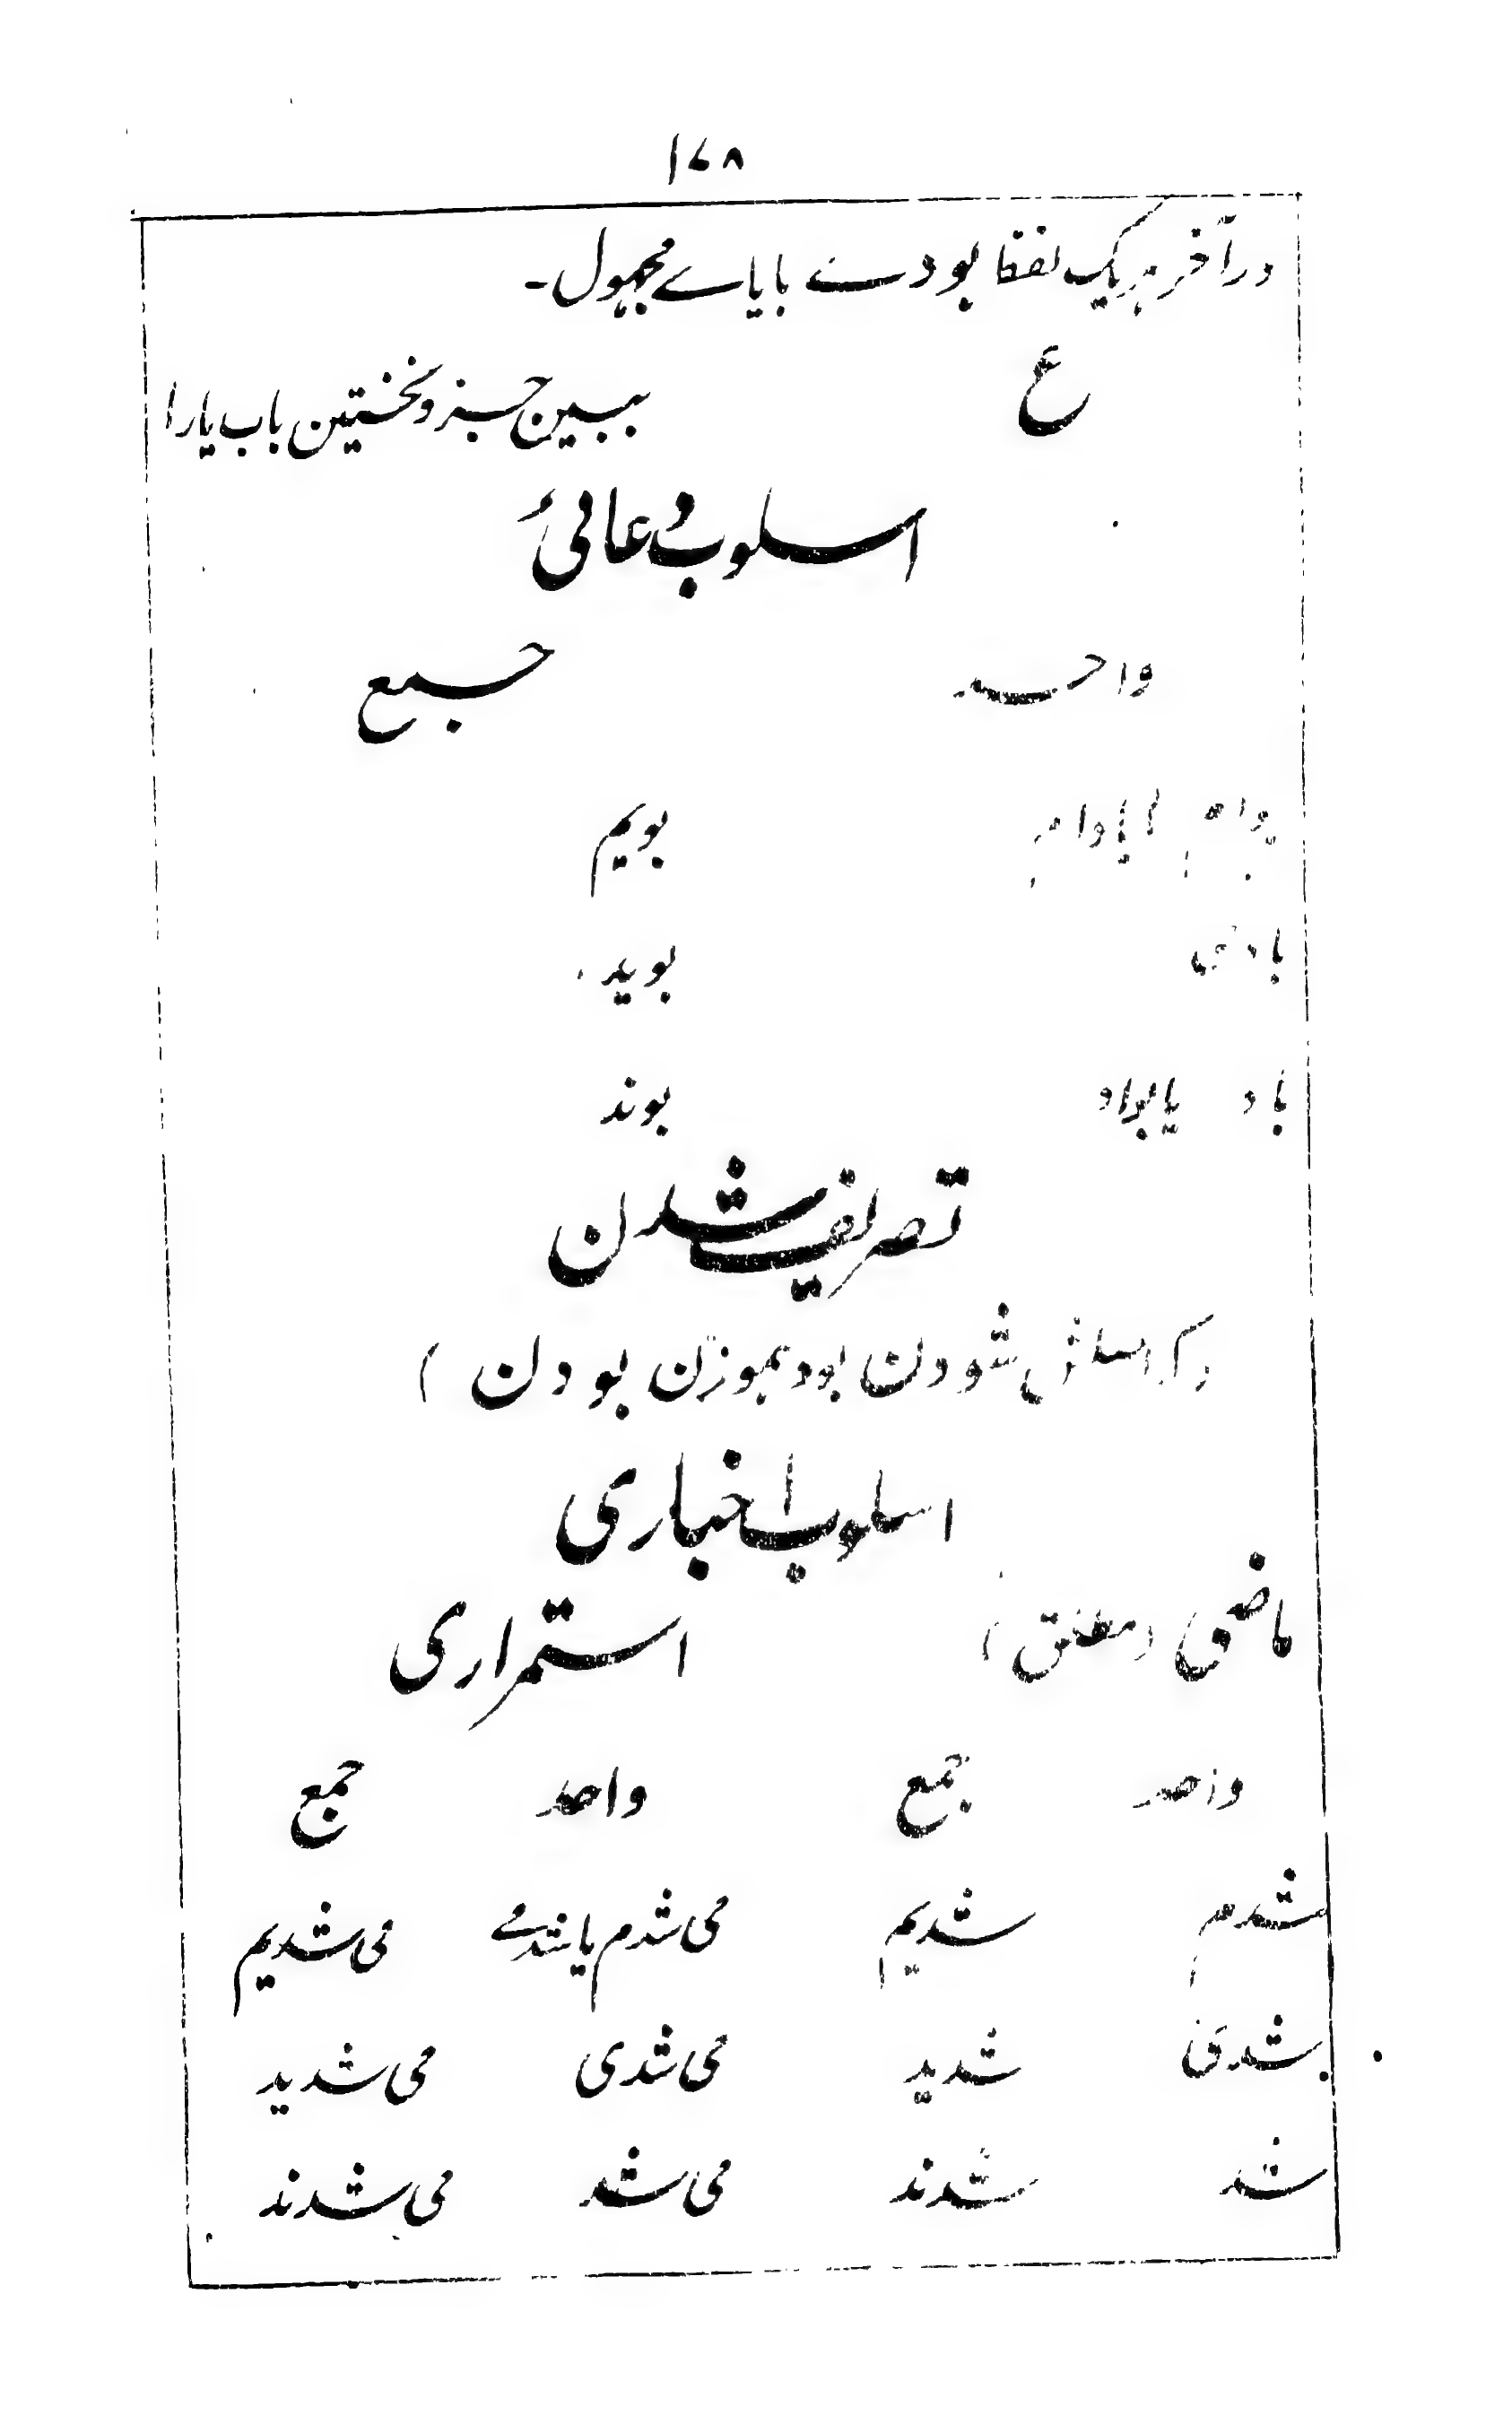 ۱۷۸
در آخر ہر یک لفظا بودے با یاے مجہول۔
ع ببین جزو نخستین باب یا را
اسلوب دعائی
واحد جمع
بویم
بوید
باد یا بواد بوند
تصریف شدن
(کہ اصلش شوودن بود بموزن بودن)
اسلوب اخباری
ماضی (مطلق) استمراری
واحد جمع واحد جمع
شدم شدیم می شدم یا شدمے می شدیم
شدی شدید می شدی می شدید
شد شدند می شد می شدند